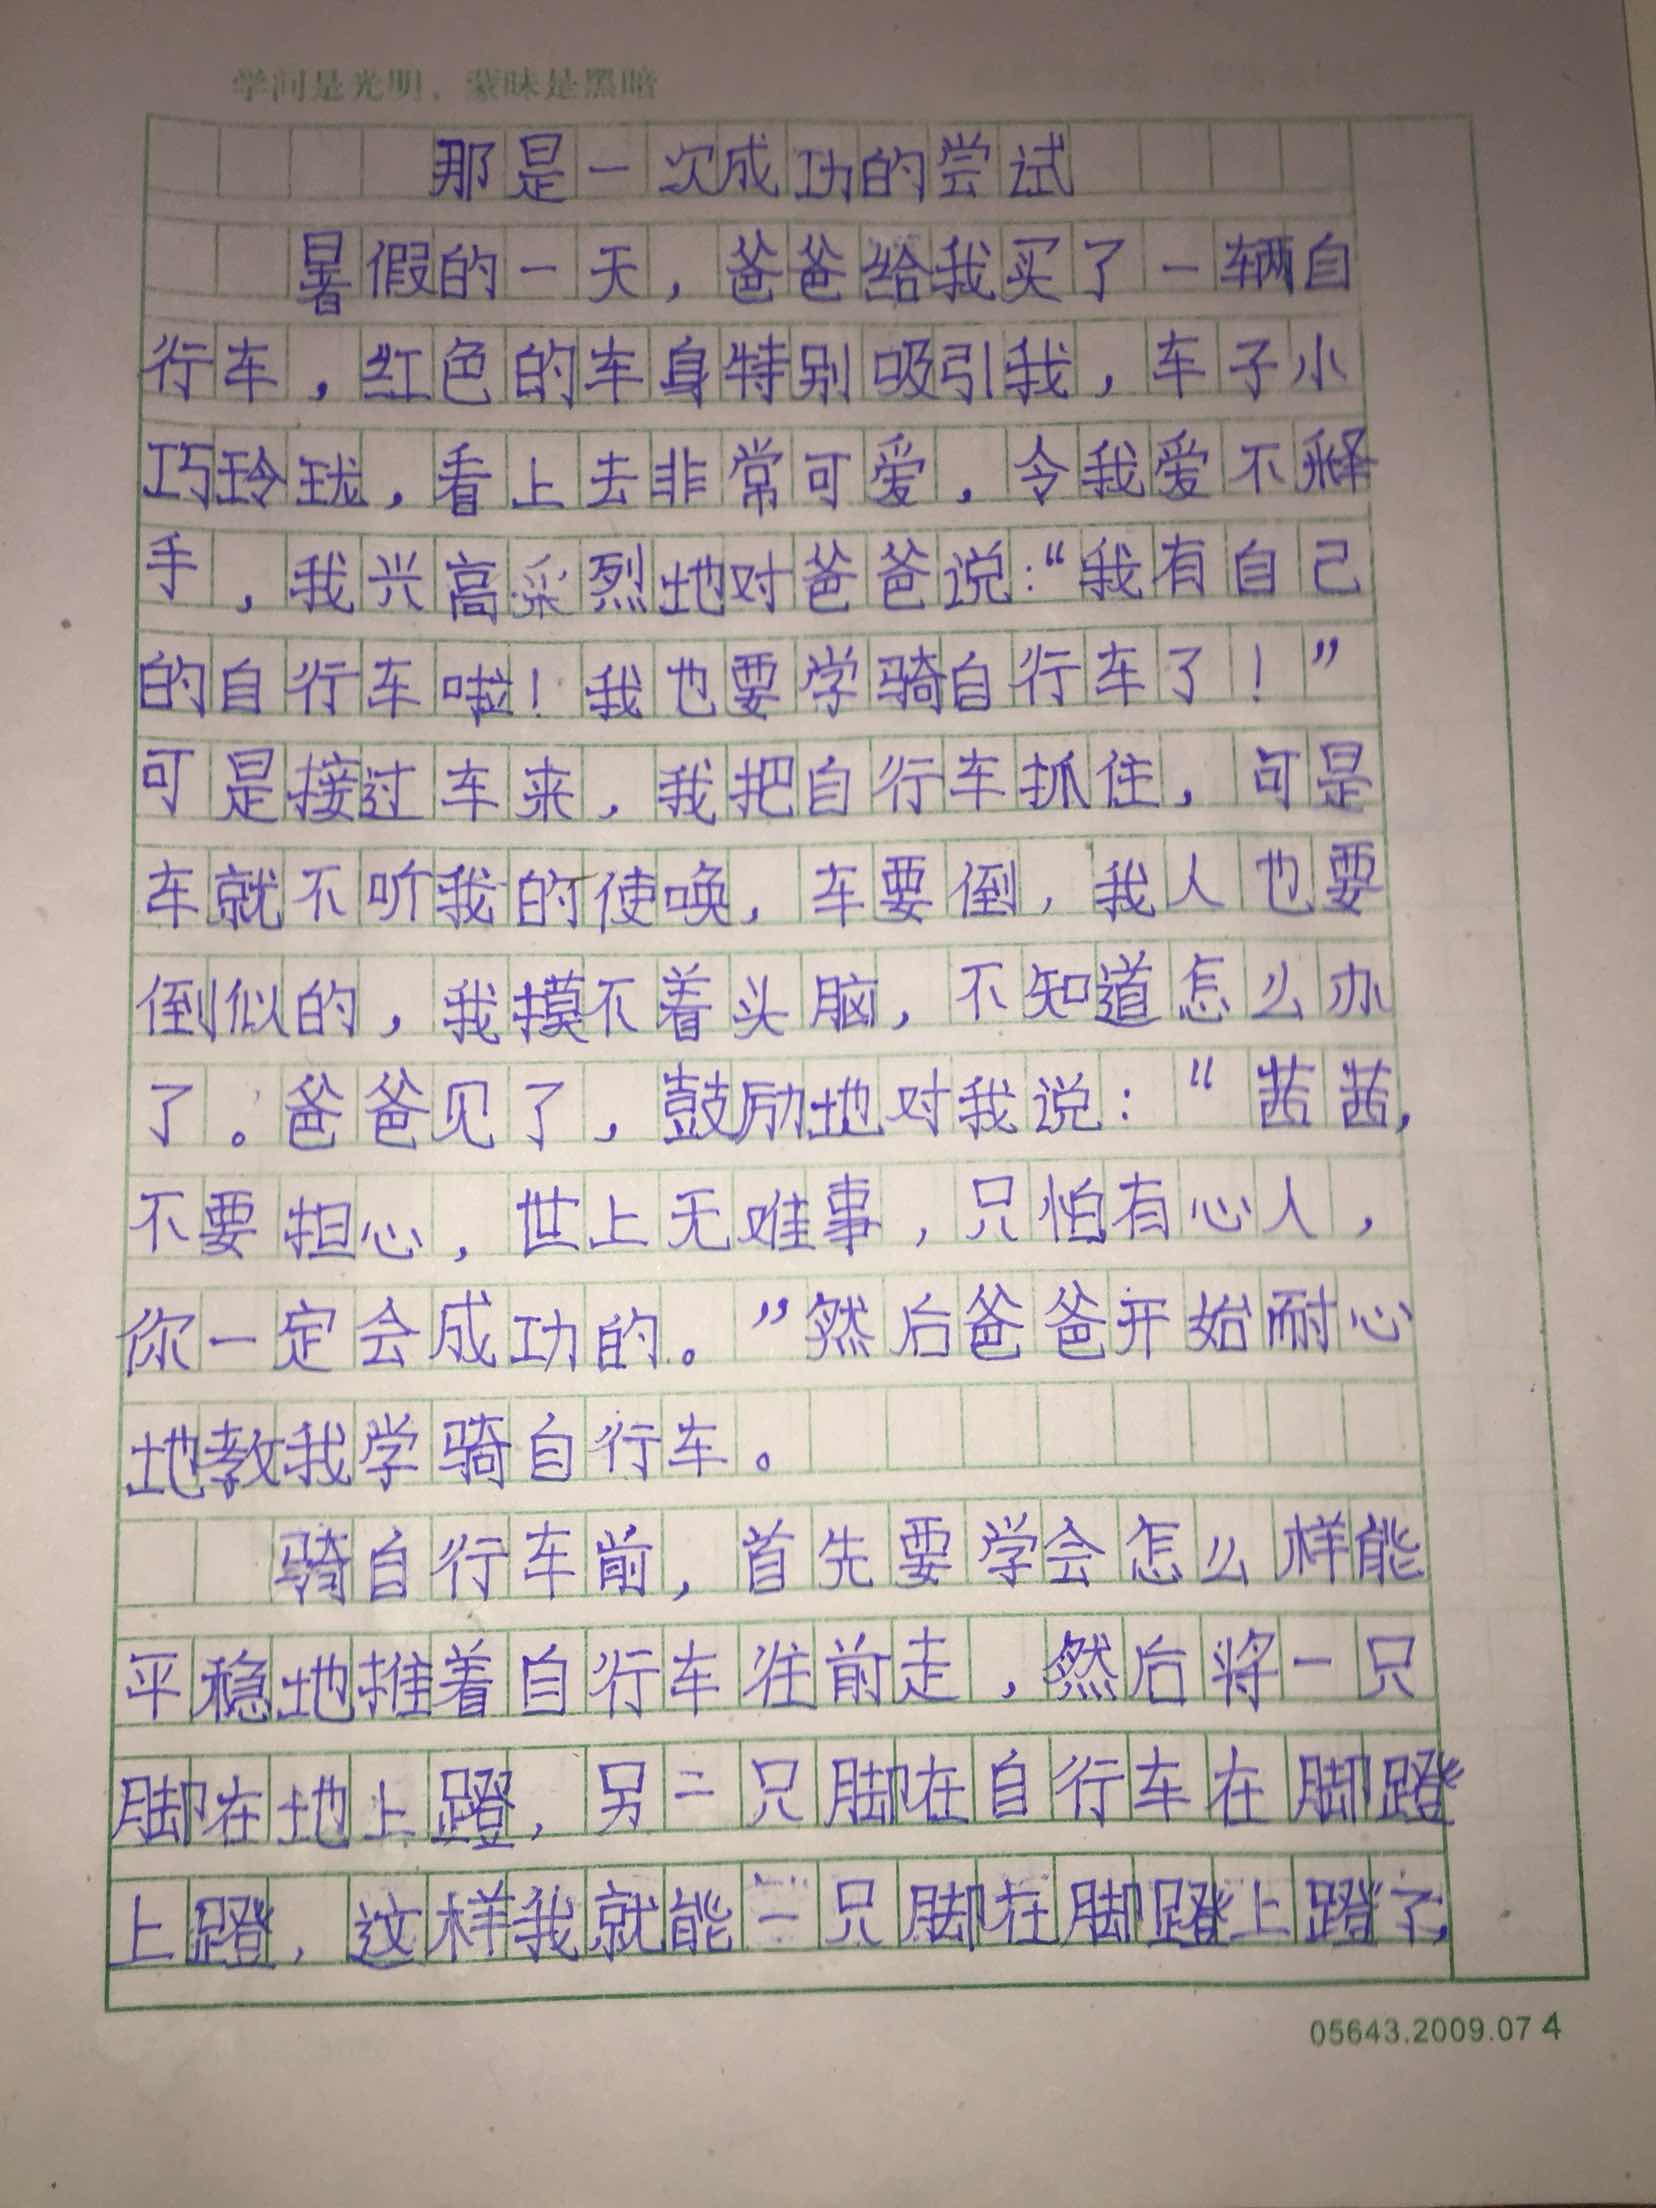 学问是光明，蒙昧是黑暗
那是一次成功的尝试
暑假的一天，爸爸给我买了一辆自
行车，红色的车身特别吸引我，车子小
巧玲珑，看上去非常可爱，令我爱不释
手，我兴高采烈地对爸爸说：“我有自己
的自行车啦！我也要学骑自行车了！”
可是接过车来，我把自行车抓住，可是
车就不听我的使唤，车要倒，我人也要
倒似的，我摸不着头脑，不知道怎么办
了。爸爸见了，鼓励地对我说：“茜茜，
不要担心，世上无难事，只怕有心人，
你一定会成功的。”然后爸爸开始耐心
地教我学骑自行车。
骑自行车前，首先要学会怎么样能
平稳地推着自行车往前走，然后将一只
脚在地上蹬，另一只脚在自行车在脚蹬
上蹬，这样我就能一只脚在脚蹬上蹬了，
05643.2009.07 4